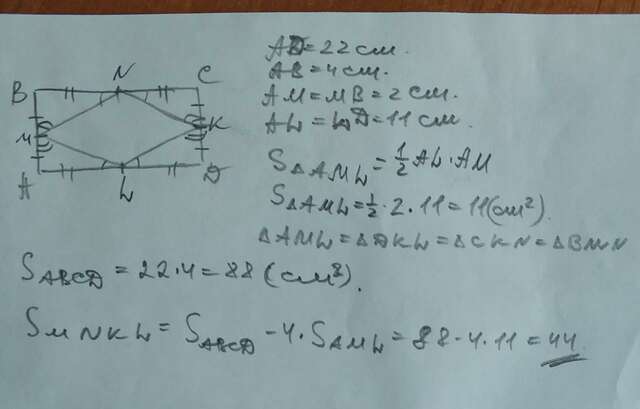 AD=22 см.
AB=4 см.
AM=MB=2 см.
AL=LD=11 см.
S△AML=½AL·AM
S△AML=½·2·11=11(см²).
△AML=△DKL=△CKN=△BMN
B N C
M K
A L D
SABCD=22·4=88 (см²).
SMNKL=SABCD-4·SAML=88-4·11=44